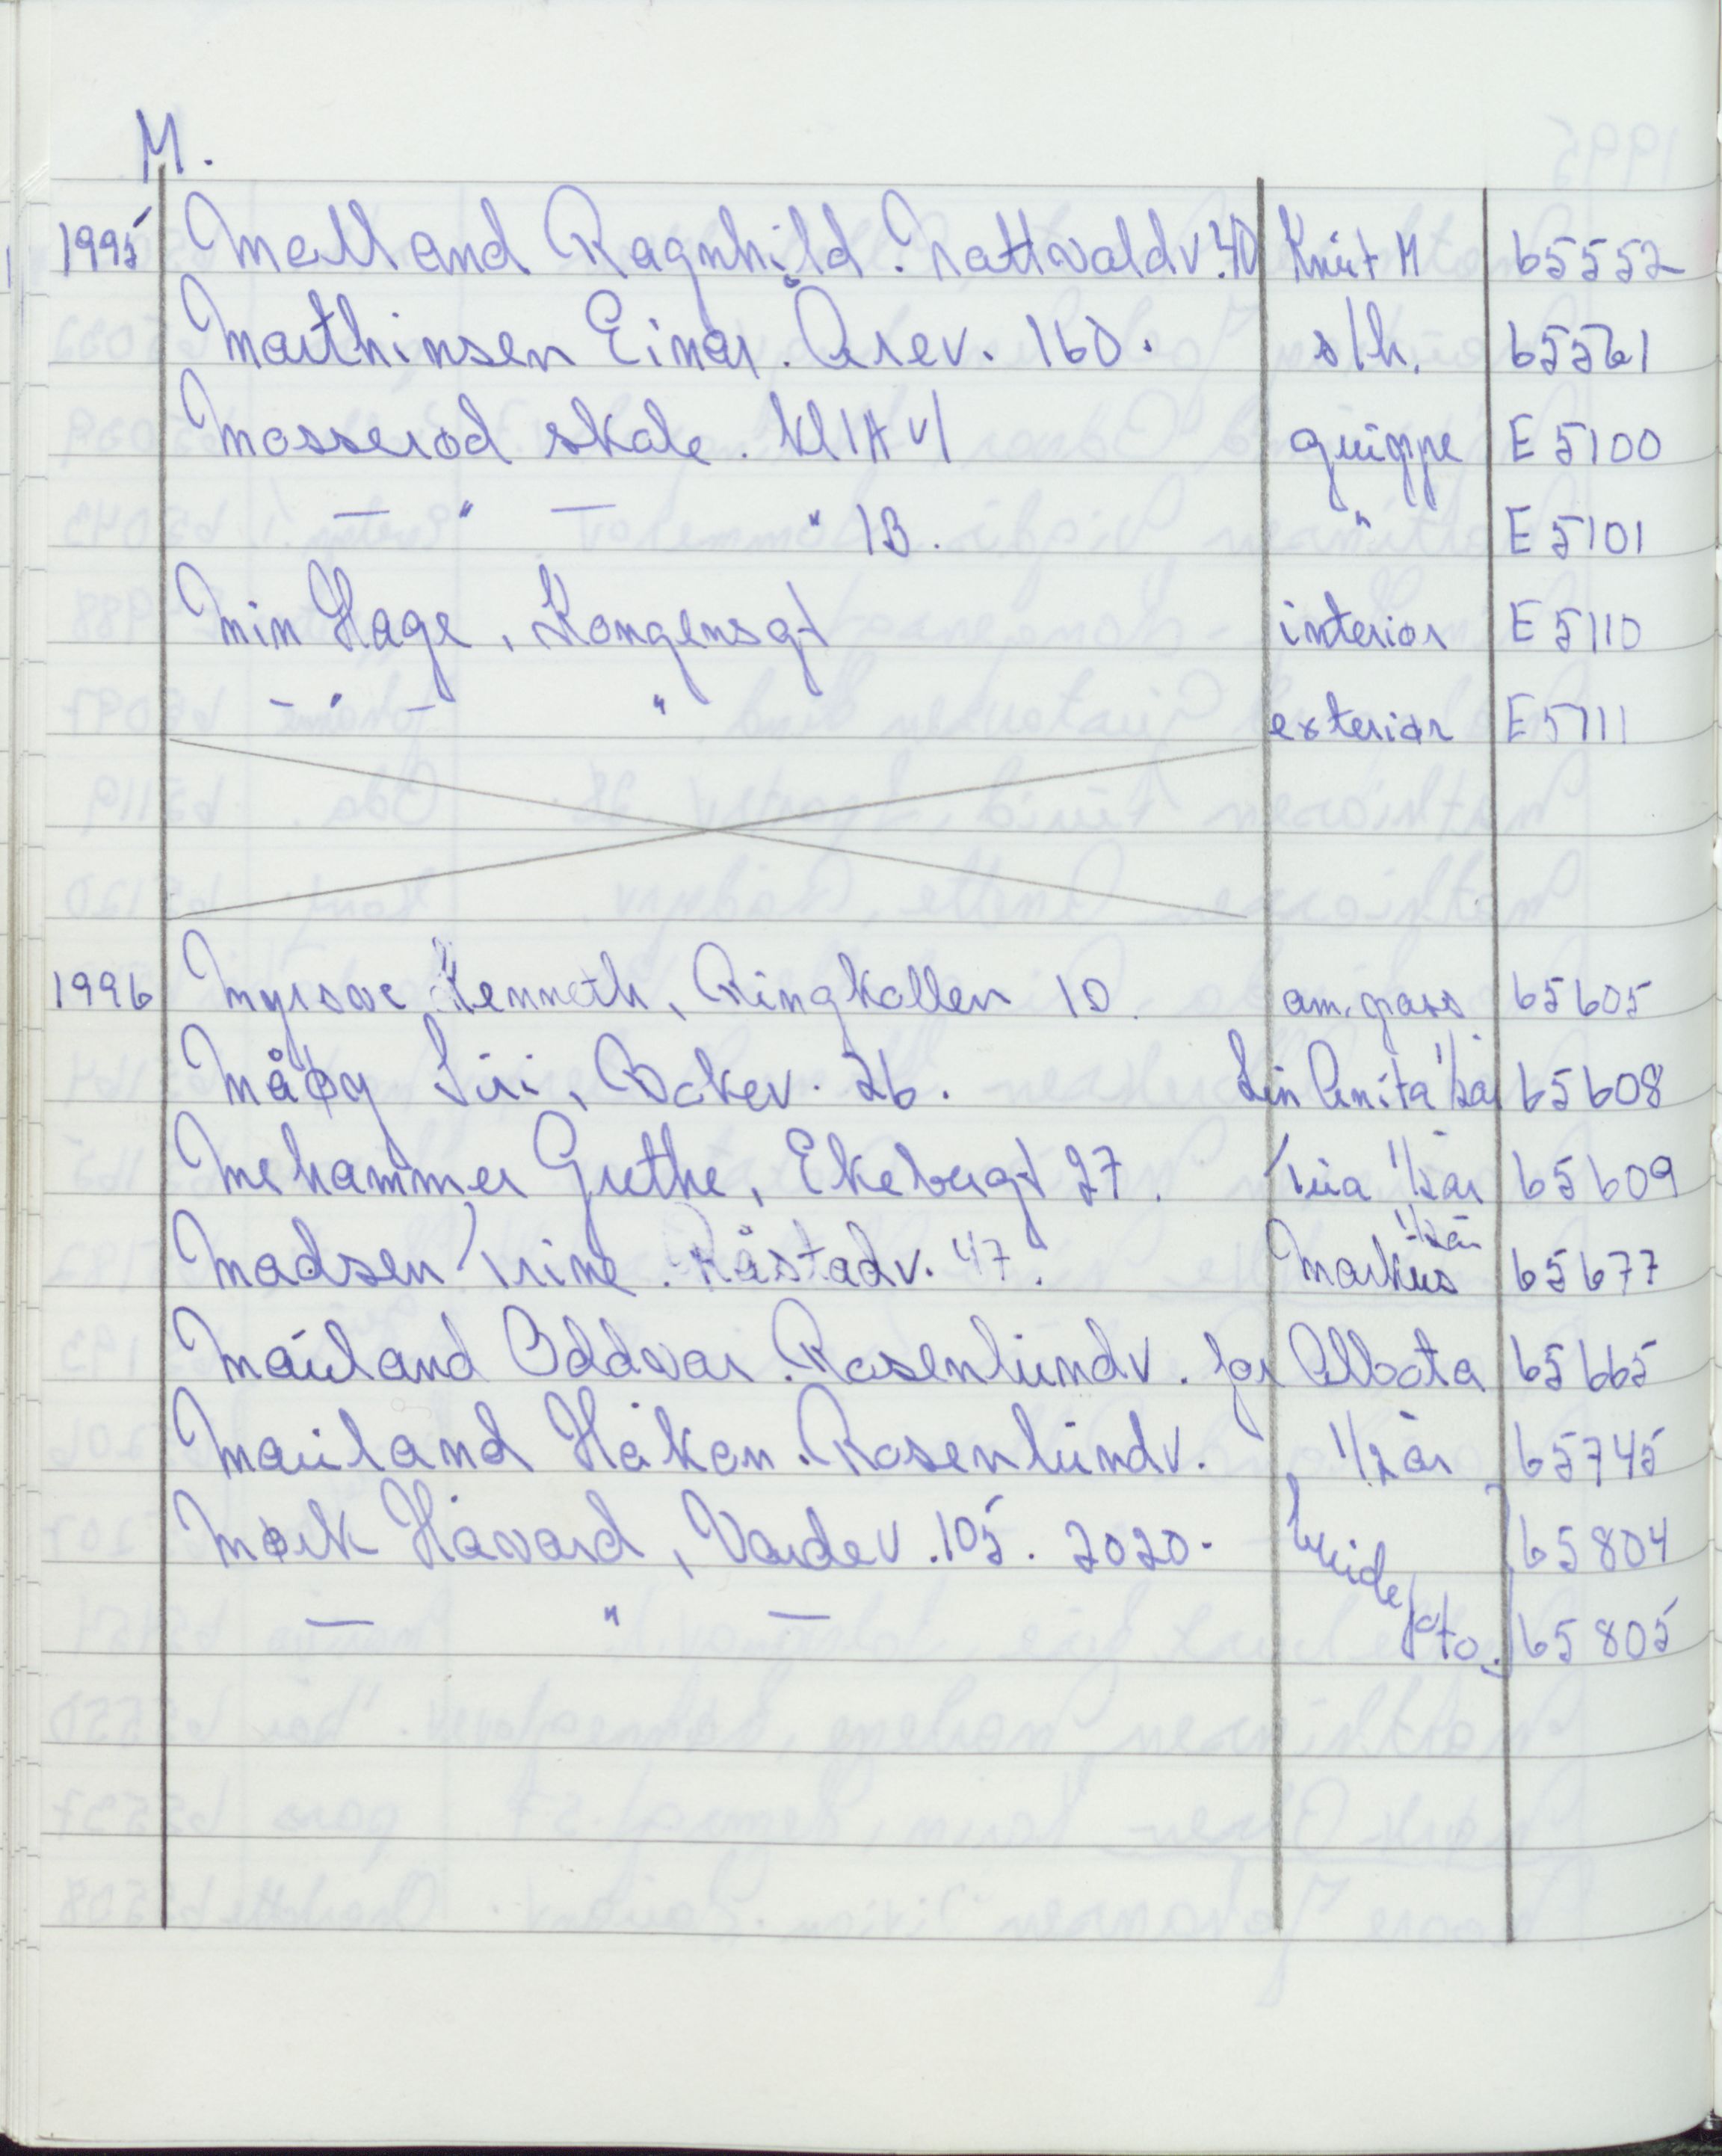 M.
1995 Mælland Ragnhild. Nattvaldv. 40 Knut M 65552
Marthinsen Einar. Årev. 160. s/h. 65561
Mosserød skole. kl 1A v/ gruppe E 5100
— " — " 1B. " E 5101
Min Hage, Kongensgt interiør E 5110
— " — " exteriør E 5111
1996 Myrsve Kenneth, Ringkollen 10. am. pass 65605
Måøy Siri, Bakev. 26. Lin Anita 1/2 år 65608
Mehammer Grethe, Ekebergt 27. Tiia 1/2 år 65609
Madsen Trine. Råstadv. 47. Markus 1/2 år 65677
Mauland Oddvar. Rosenlundv. for Albota 65665
Mauland Håkon. Rosenlundv. 1/2 år 65745
Mørk Håvard, Vardev. 105. 2020. brude 65804
— " — foto. 65805